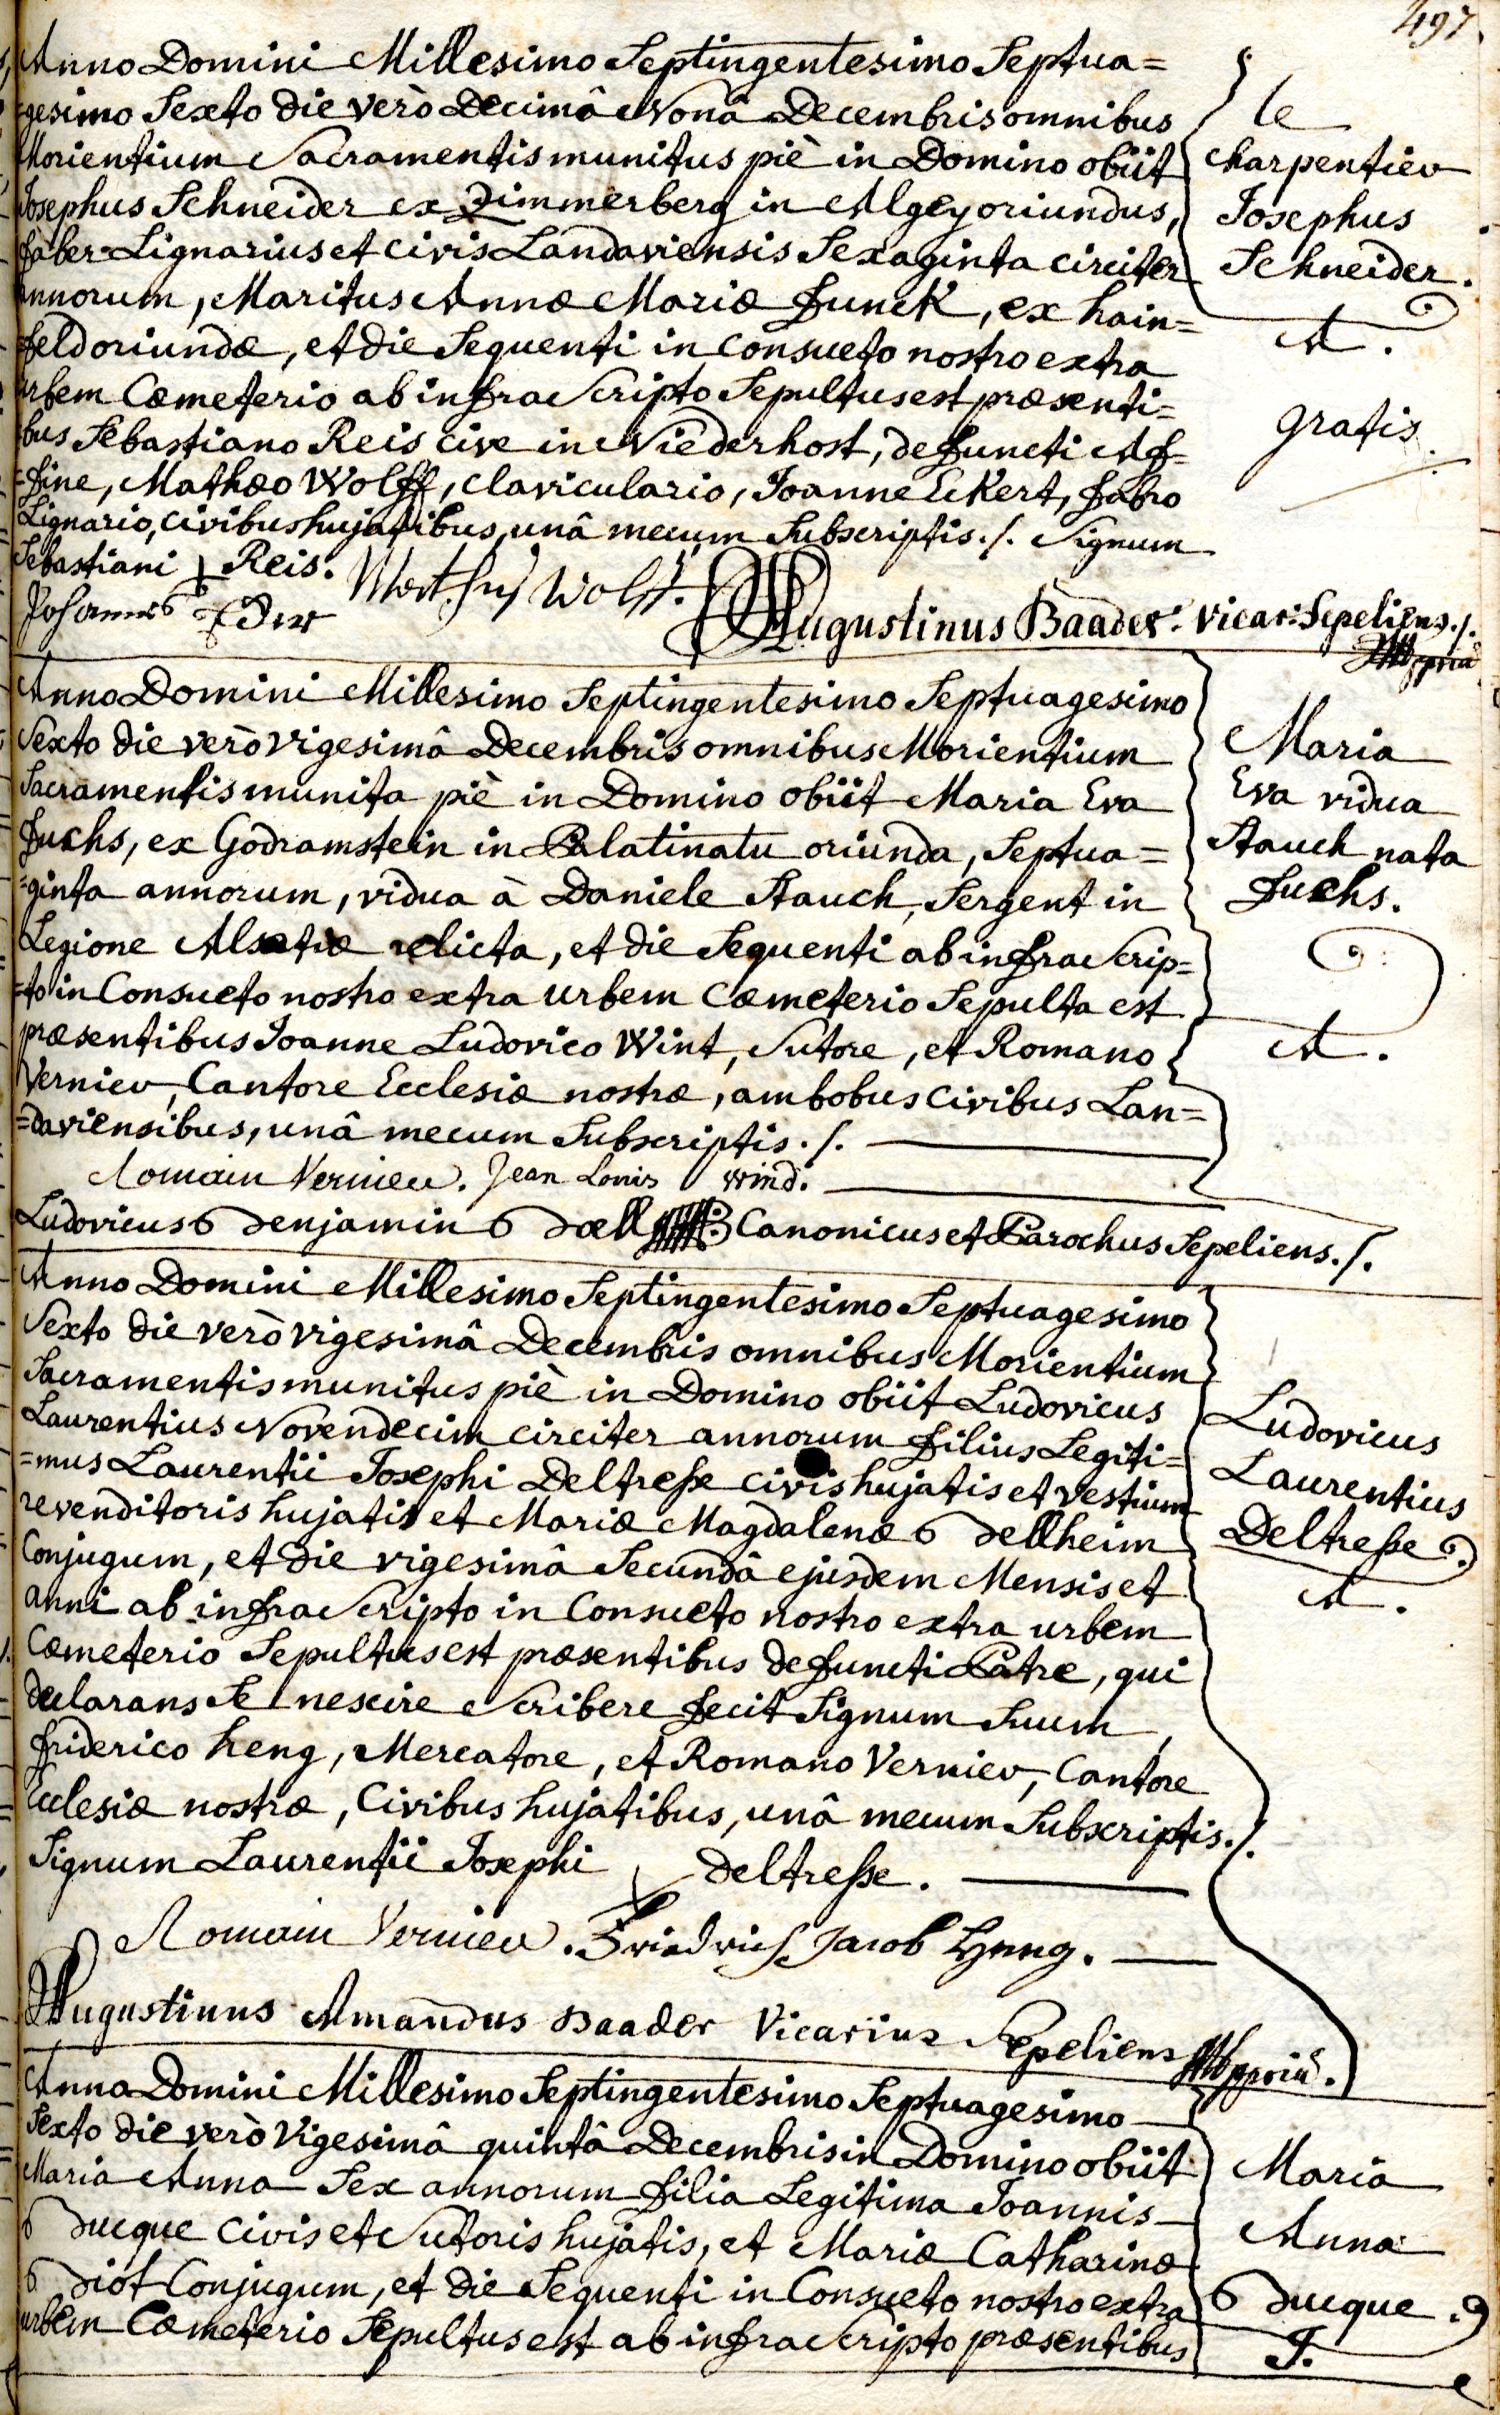 497.
Anno Domini Millesimo Septingentesimo Septua=
=gesimo Sexto die verò Decimâ Nonâ Decembris omnibus
Morientium Sacramentis munitus piè in Domino obiit
Josephus Schneider ex Zimmerberg in Algey oriundus,
faber Lignarius et civis Landaviensis Sexaginta circiter
annorum, Maritus Annæ Mariæ Funck, ex hain=
feld oriundæ, et die Sequenti in consueto nostro extra
urbem Cœmeterio ab infra Scripto Sepultus est præsenti=
bus Sebastiano Reis cive in Niederhost, defuncti Af=
=fine, Mathæo Wolff, claviculario, Joanne Eckert, fabro
Lignario, civibus hujatibus, unâ mecum Subscriptis./. Signum
Sebastiani Reis. Wolff.
Augustinus Baader: vicar: Sepeliens./.
le
charpentier
Josephus
Schneider.
A.
gratis.
Anno Domini Millesimo Septingentesimo Septuagesimo
Sexto die verò vigesimâ Decembris omnibus Morientium
Sacramentis munita piè in Domino obiit Maria Eva
Fuchs, ex Godramstein in Palatinatu oriunda, Septua=
=ginta annorum, vidua à Daniele Stauch, Sergent in
Legione Alsatiæ relicta, et die Sequenti ab infra Scrip=
=to in Consueto nostro extra urbem Cœmeterio Sepulta est
præsentibus Joanne Ludovico Wint, Sutore, et Romano
Vernier, Cantore Ecclesiæ nostræ, ambobus civibus Lan=
=daviensibus, unâ mecum Subscriptis./.
Romain Vernier. Jean Louis Wind.
Ludovicus Benjamin Bœll Canonicus et Parochus Sepeliens./.
Maria
Eva vidua
Stauch nata
Fuchs.
A.
Anno Domini Millesimo Septingentesimo Septuagesimo
Sexto die verò vigesimâ Decembris omnibus Morientium
Sacramentis munitus piè in Domino obiit Ludovicus
Laurentius Novendecim circiter annorum filius Legiti=
=mus Laurentii Josephi Deltresse civis hujatis et vestium
revenditoris hujatis et Mariæ Magdalenæ Bellheim
Conjugum, et die vigesimâ Secundâ ejusdem Mensis et
anni ab infra Scripto in Consueto nostro extra urbem
Cœmeterio Sepultus est præsentibus defuncti Patre, qui
declarans Se nescire Scribere fecit Signum Suum,
friderico heng, Mercatore, et Romano Vernier, Cantore
Ecclesiæ nostræ, Civibus hujatibus, unâ mecum Subscriptis./.
Signum Laurentii Josephi Deltresse.
Romain Vernier. Friedrich Jacob Heng.
Augustinus Amandus Baader Vicarius Sepeliens
Ludovicus
Laurentius
Deltresse.
A.
Anno Domini Millesimo Septingentesimo Septuagesimo
Sexto die verò Vigesimâ quintâ Decembris in Domino obiit
Maria Anna Sex annorum filia Legitima Joannis
Bucque civis et Sutoris hujatis, et Mariæ Catharinæ
Biot Conjugum, et die Sequenti in Consueto nostro extra
urbem Cœmeterio Sepultus est ab infra Scripto præsentibus
Maria
Anna
Bucque.
J.